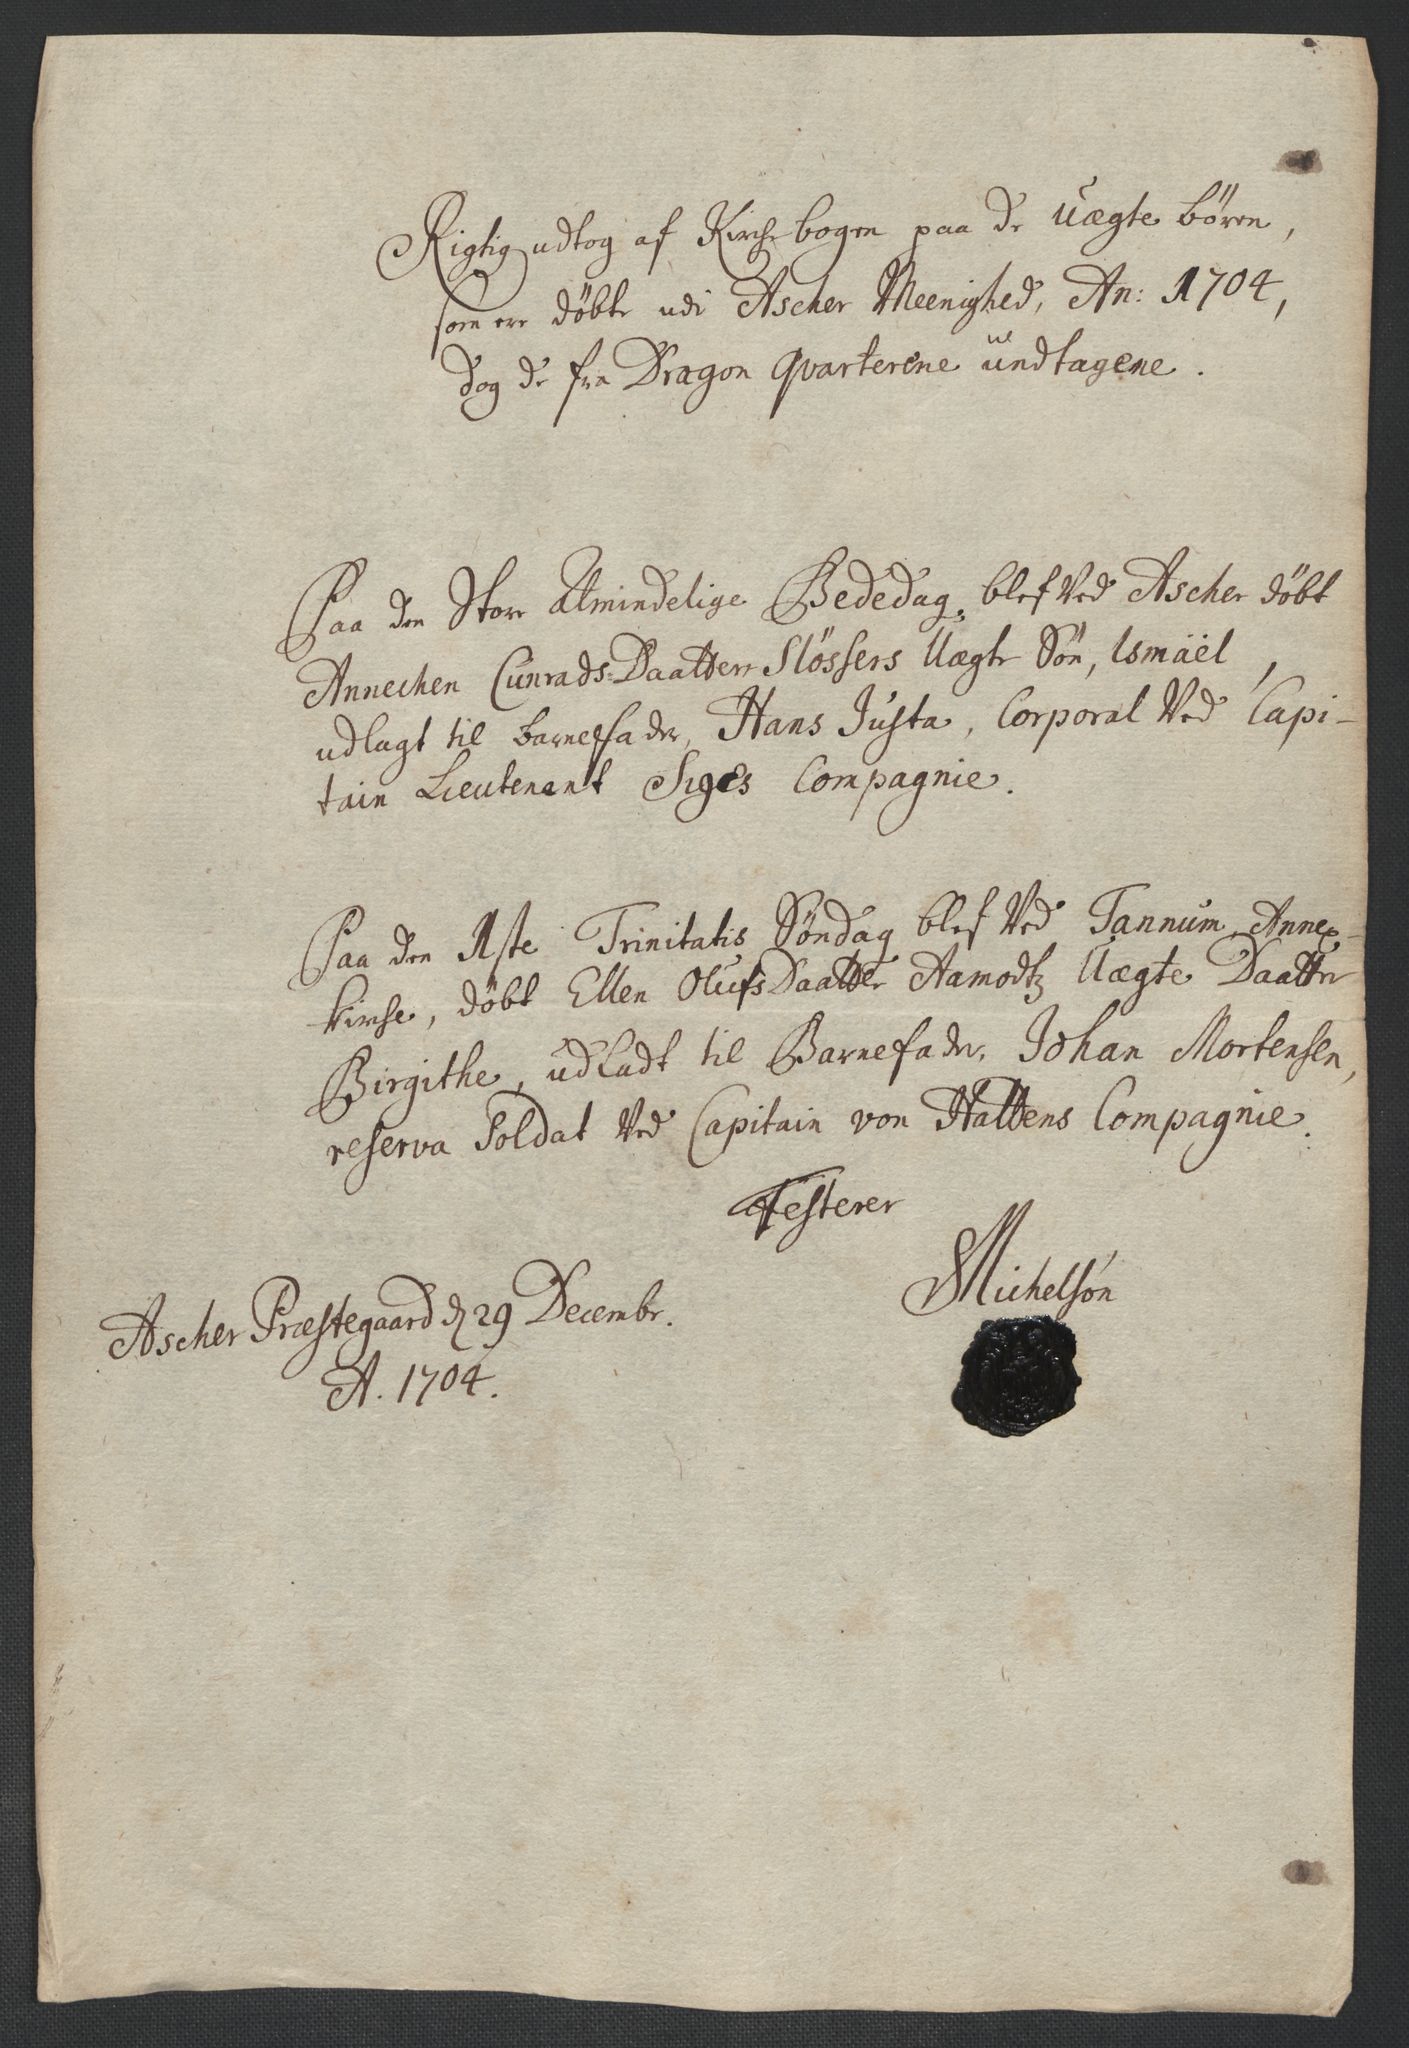 Rigtig udtog af Kirchebogen paa de Uægte börn,
som ere döbte udi Ascher Meenighed, An: 1704,
dog de fra Dragon Qvarterene undtagene.
Paa den Store Almindelige Bededag, blef Ved Ascher döbt
Annechen Cunrads-Daatters Slössers Uægte Sön, Ismäel,
udlagt til barnefader, Hans Justa, Corporal Ved Capi-
tain Lieutenant Siges Compagnie.
Paa den 1ste Trinitatis Söndag blef Ved Tannum Annex-
kirche, döbt Ellen OlufsDaatter Aamodtz Uægte Daatter
Birgithe, udladt til Barnefader, Johan Mortensen,
reserva Soldat Ved Capitain von Hattens Compagnie.
Attesterer
Michelsön
Ascher Præstegaard d 29 Decembr.
A. 1704.